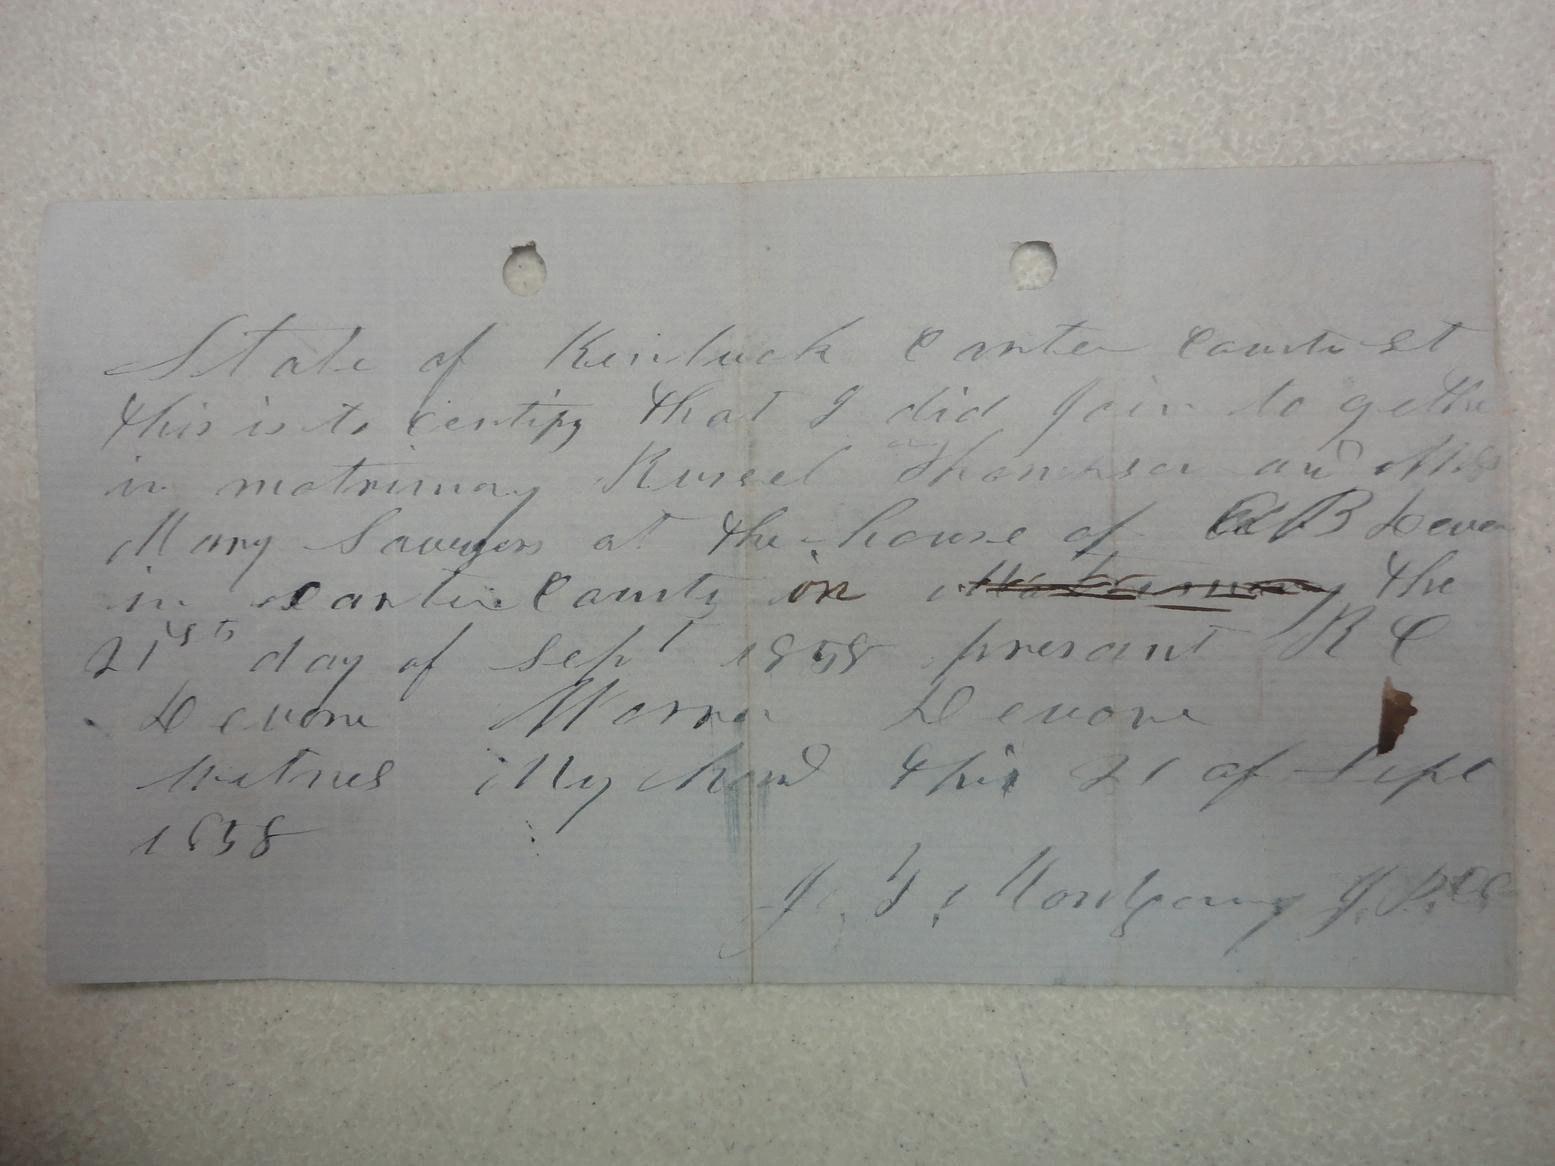 State of Kentuck Carter County st
this is to certify that I did Join to gethe
in matrimony Russel Thompson and Miss
Mary Sawyers at the house of B Devor
in Carter County on the
21st day of Sept 1858 present R C
Devore Warner Devore
Witness My hand this 21 of Sept
1858
J. Montgomery J. P. CC